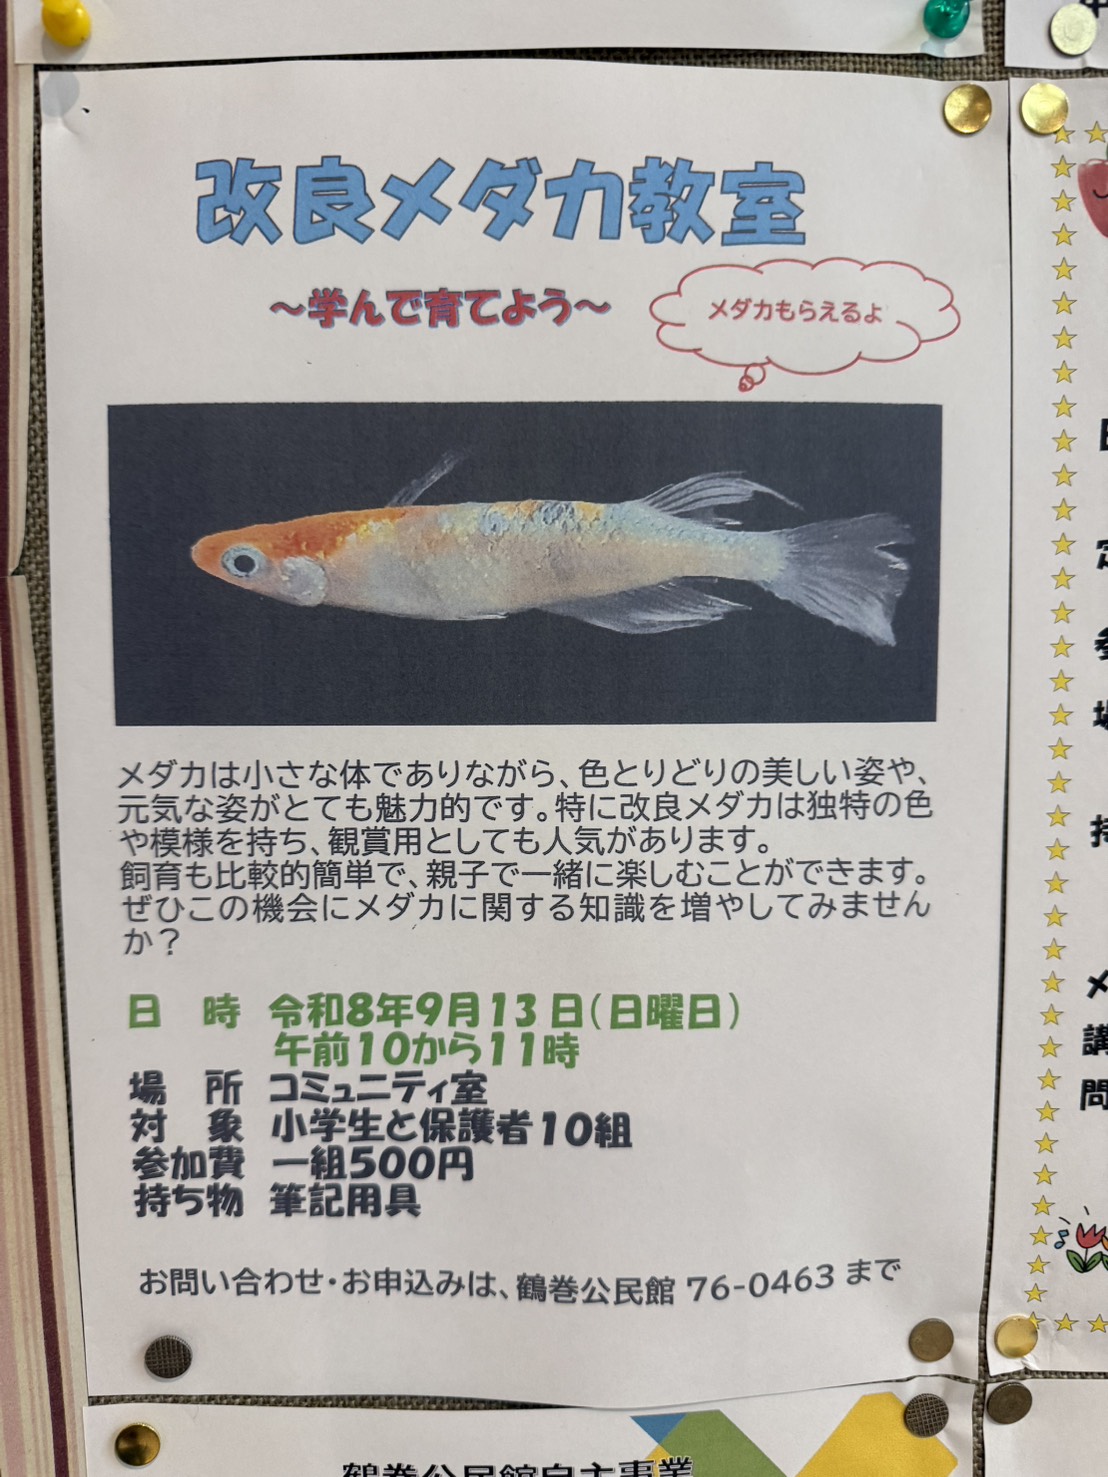 改良メダカ教室
～学んで育てよう～
メダカもらえるよ
メダカは小さな体でありながら、色とりどりの美しい姿や、
元気な姿がとても魅力的です。特に改良メダカは独特の色
や模様を持ち、観賞用としても人気があります。
飼育も比較的簡単で、親子で一緒に楽しむことができます。
ぜひこの機会にメダカに関する知識を増やしてみません
か？
日　時　令和8年9月13日（日曜日）
午前10から11時
場　所　コミュニティ室
対　象　小学生と保護者10組
参加費　一組500円
持ち物　筆記用具
お問い合わせ・お申込みは、鶴巻公民館 76-0463 まで
鶴巻公民館自主事業
講
問